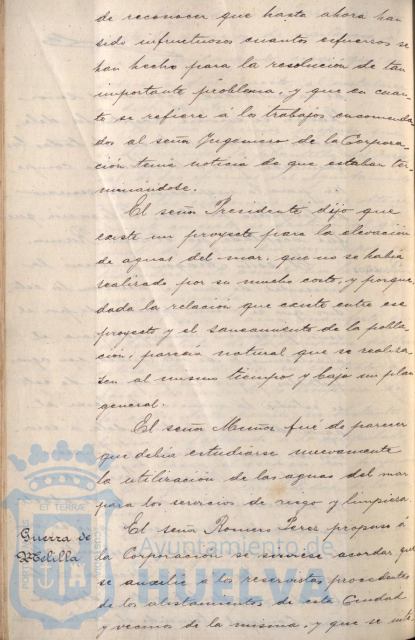 de reconocer que hasta ahora han
sido infructuosos cuantos esfuerzos se
han hecho para la resolución de tan
importante problema, y que en cuan-
to se refiere á los trabajos encomenda
dos al señor Yngeniero de la Corpora-
ción tenia noticia de que estaban ter-
minandose.
El señor Presidente dijo que
existe un proyecto para la elevación
de aguas del mar, que no se habia
realizado por su mucho costo, y porque
dada la relación que existe entre ese
proyecto y el saneamiento de la pobla
ción, parecia natural que se realiza-
sen al mismo tiempo y bajo un plan
general.
El señor Muñoz fué de parecer
que debia estudiarse nuevamente
la utilización de las aguas del mar
para los servicios de riego y limpieza
Guerra de
Melilla
El señor Romero Perez propuso á
la Corporación se sirviese acordar que
se auxilie á los reservistas procedentes
de los alistamientos de esta Ciudad
y vecinos de la misma, y que se
ET TERRAE
Ayuntamiento de
HUELVA